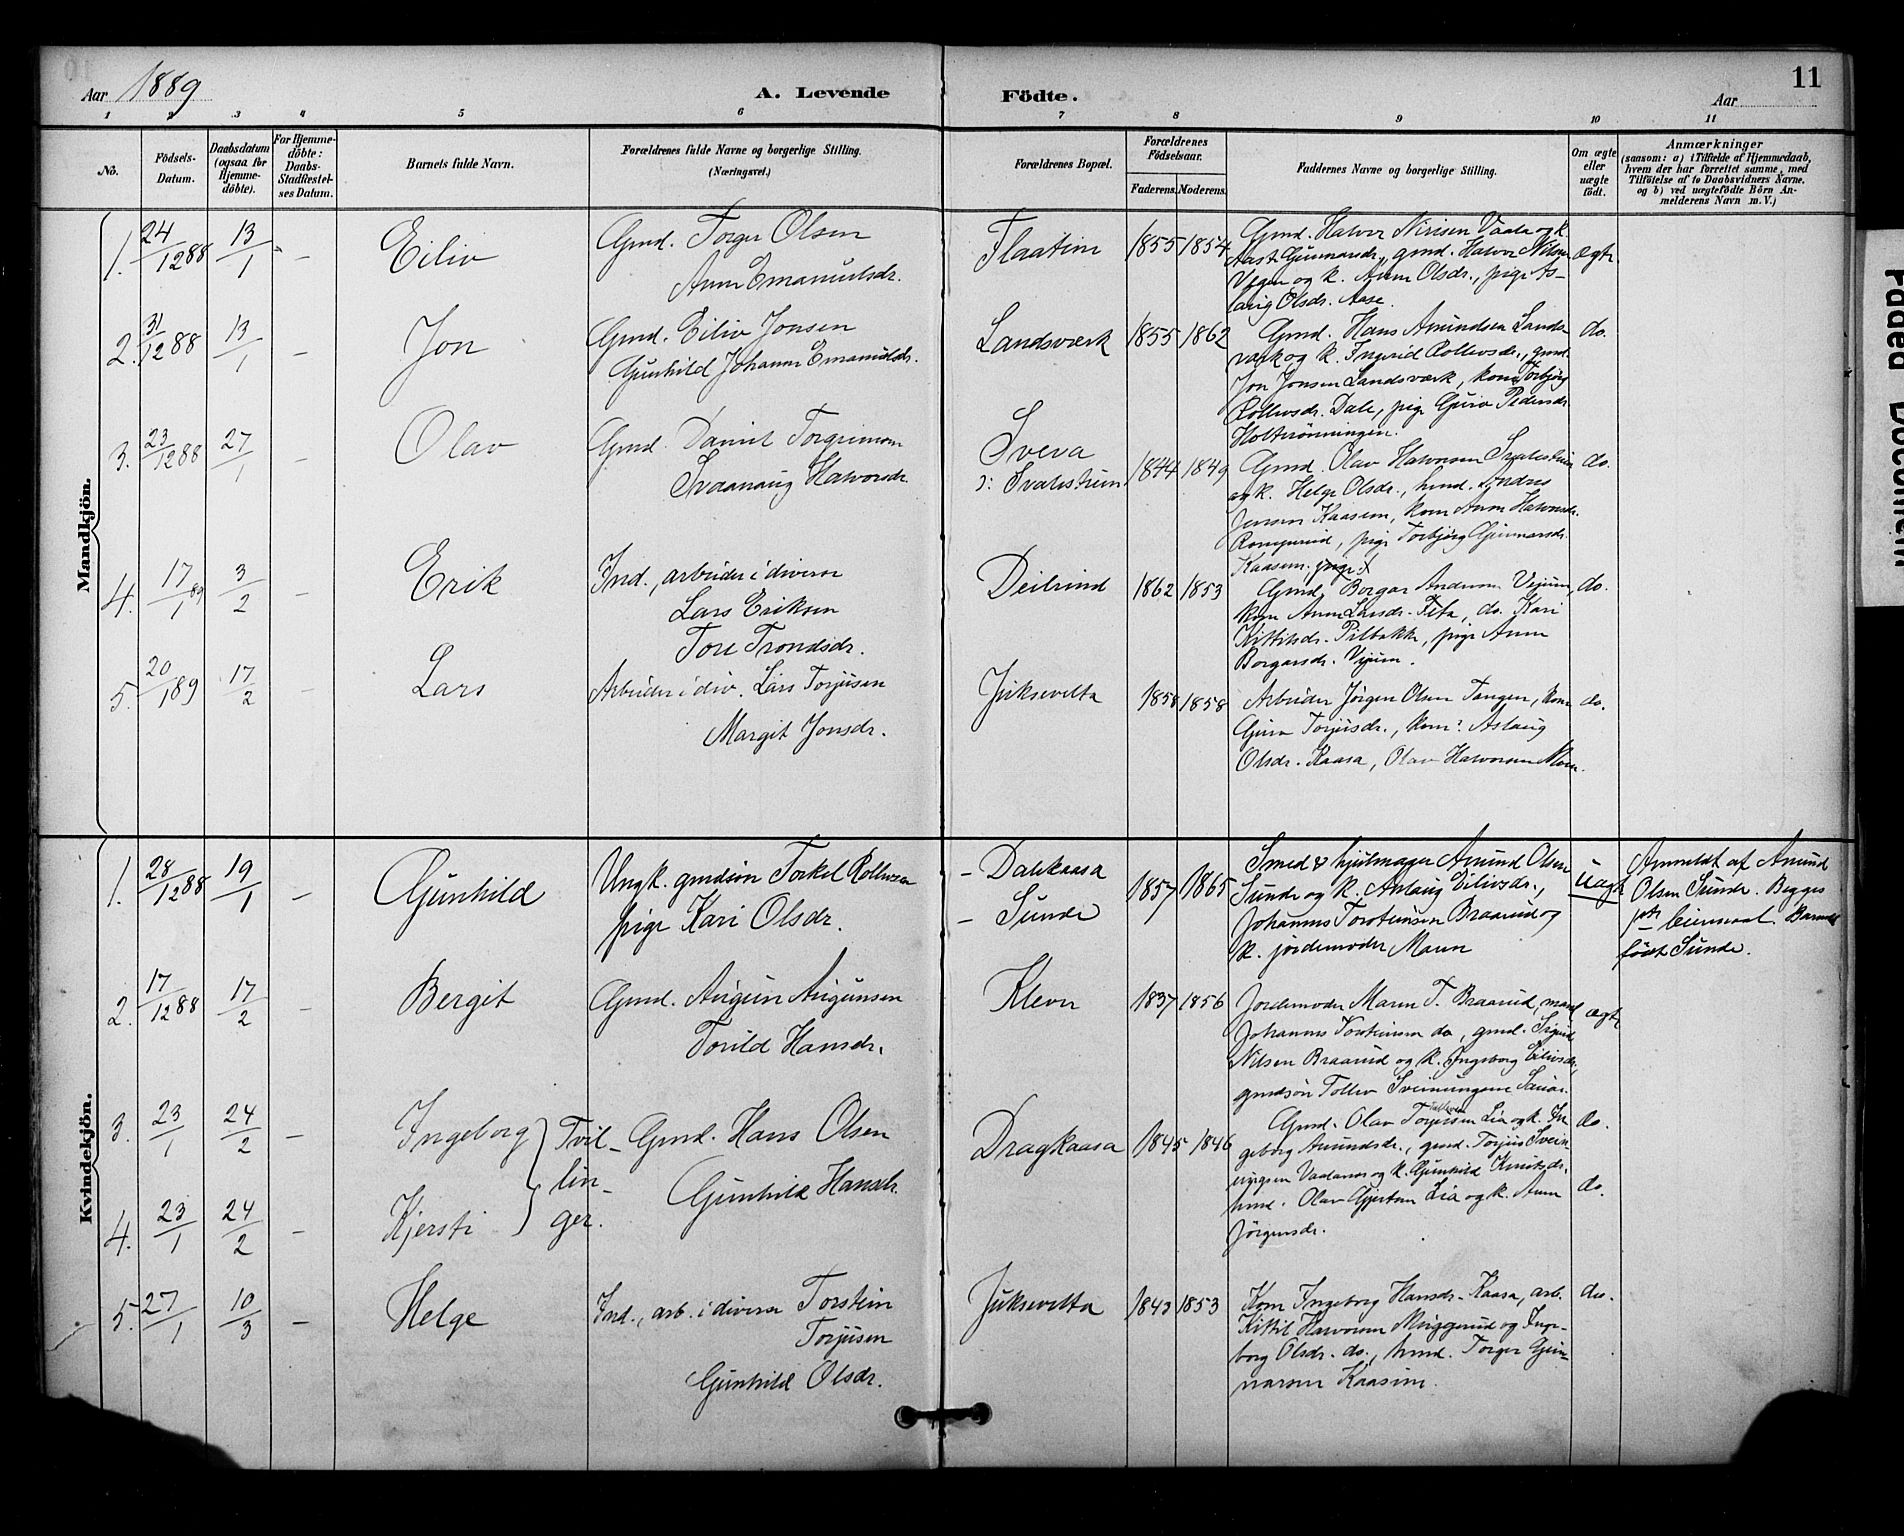 Aar 1889
A. Levende Födte.
Aar
11
1 2 3 4 5 6 7 8 9 10 11
No.
Födsels-
Datum.
Daabsdatum
(ogsaa för
Hjemme-
döbte).
For Hjemme-
döbte:
Daabs-
Stadfæstel-
ses Datum.
Barnets fulde Navn.
Forældrenes fulde Navne og borgerlige Stilling.
(Næringsvei.)
Forældrenes Bopæl.
Forældrenes
Födselsaar.
Faderens. Moderens.
Faddernes Navne og borgerlige Stilling.
Om ægte
eller
uægte
födt.
Anmærkninger
(saasom: a) i Tilfælde af Hjemmedaab,
hvem der har forrettet samme, med
Tilföielse af to Daabsvidners Navne,
og b) ved uægtefödte Börn An-
melderens Navn m.V.)
Mandkjön.
1. 24/12 88 13/1 - Eiliv
Gmd. Torger Olsen
Anne Emanuelsdr.
Flaatin 1855 1854
Gmd. Halvor Nirisen Vaala og k.
Aast Gunnarsdr., gmd. Halvor Nilsen
og k. Anne Olsdr., pige As-
laug Olsdr. Aase.
ægte
2. 31/12 88 13/1 - Jon
Gmd. Eiliv Jonsen
Gunhild Johanne Emanuelsdr.
Landsværk 1855 1862
Gmd. Hans Amundsen Lands-
værk og k. Ingerid Rollevsdr., gmd.
Jon Jonsen Landsværk, kone Torbjørg
Rollevsdr. Dale, pige Guro Pedersdr.
Holtrönningen.
do.
3. 23/12 88 27/1 - Olav
Gmd. Daniel Torgrimsen
Svaanaug Halvorsdr.
Sveva
ɔ: Svalestuen 1844 1849
Gmd. Olav Halvorsen Svalestuen
og k. Helge Olsdr., hmd. Andres
Jensen Kaasene, kone Anne Halvorsdr.
Romperud, pige Torbjørg Gunnarsdr.
Kaasene.
do.
4. 17/1 89 3/2 - Erik
Ind., arbeider i diverse
Lars Eriksen
Tore Trondsdr.
Deilrind 1862 1853
Gmd. Borgar Andersen Vejum,
kone Anne Larsdr. Feta, do. Kari
Kittilsdr. Pilbakke, pige Anne
Borgarsdr. Vejum.
do.
5. 20/1 89 17/2 - Lars
Arbeider i div. Lars Torjusen
Margit Jonsdr.
Juksevelta 1858 1858
Arbeider Jörgen Olsen Tangen, kone
Guro Torjusdr., kone: Aslaug
Olsdr. Kaasa, Olav Halvorsen Moen.
do.
Kvindekjön.
1. 28/12 88 19/1 - Gunhild
Ungk. gmdsön Torkel Rollevsen
pige Kari Olsdr.
- Dalekaasa
- Sunde
1857 1865
Smed & hjulmager Amund Olsen
Sunde og k. Aslaug Eilivsdr.,
Johannes Torsteinsen Braarud og
k. jordemoder Maren
Uægte
Anmeldt af Amund
Olsen Sunde. Begges
1ste leiermaal. Barnet
födt Sunde.
2. 17/12 88 17/2 - Bergit
Gmd. Augun Augunsen
Torild Hansdr.
Kleva 1837 1856
Jordemoder Maren T. Braarud, mand
Johannes Torsteinsen do, gmd. Sigurd
Nilsen Braarud og k. Ingeborg Eilivsdr.,
gmdsön Tollev Sveinungsen Sauar.
ægte
3. 23/1 24/2 - Ingeborg
4. 23/1 24/2 - Kjersti
Tvil-
lin-
ger.
Gmd. Hans Olsen
Gunhild Hansdr.
Dragkaasa 1845 1846
Gmd. Olav Torjusen Lia og k. In-
geborg Amundsdr., gmd. Torjus Svein-
ungsen Vaalanes og k. Gunhild Knutsdr.
hmd. Olav Gjertsen Lia og k. Anne
Jörgensdr.
do.
do.
5. 27/1 10/3 - Helge
Ind., arb. i diverse Torstein
Torjusen
Gunhild Olsdr.
Juksevelta 1843 1853
Kone Ingeborg Hansdr. Kaasa, arb.
Kittil Halvorsen Meiggerud og Inge-
borg Olsdr. do., hmd. Torger Gun-
narsen Kaasene.
do.
Faded Document